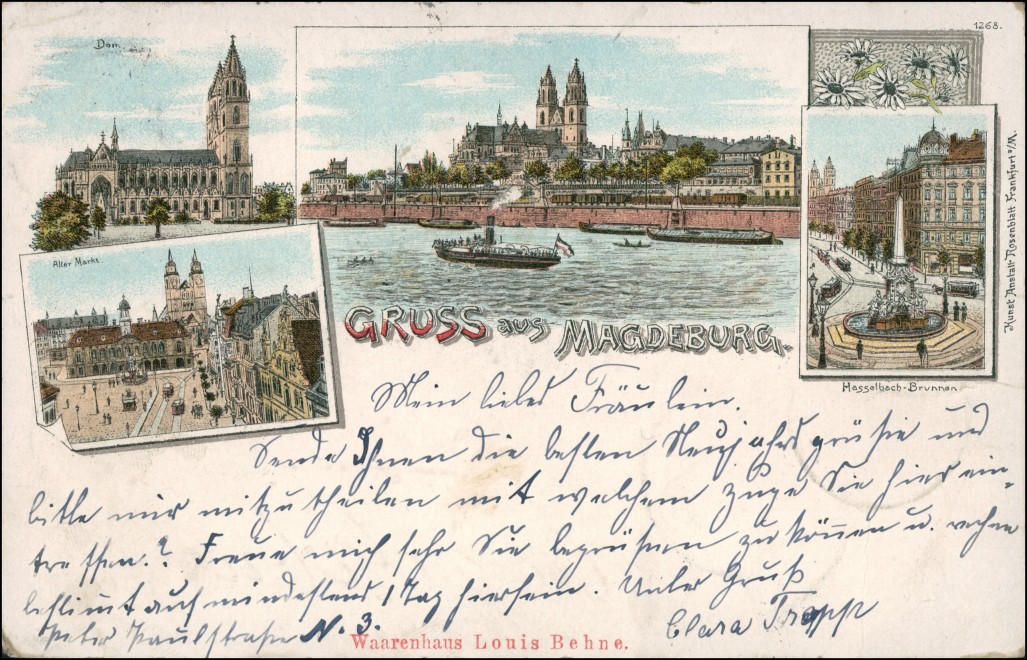 Dom.
1268.
Alter Markt.
GRUSS aus MAGDEBURG.
Hasselbach-Brunnen.
Kunst Anstalt Rosenblatt Frankfurt a/M.
Mein liebes Fräulein.
Sende Ihnen die besten Neujahrsgrüße und
bitte mir mitzutheilen mit welchem Zuge Sie hier ein-
treffen.? Freue mich sehr Sie begrüßen zu können u. rechne
bestimt auf mindestens 1 Tag hiersein. Unter Gruß
Clara Trapp
Peter Paulstraße N. 3.
Waarenhaus Louis Behne.